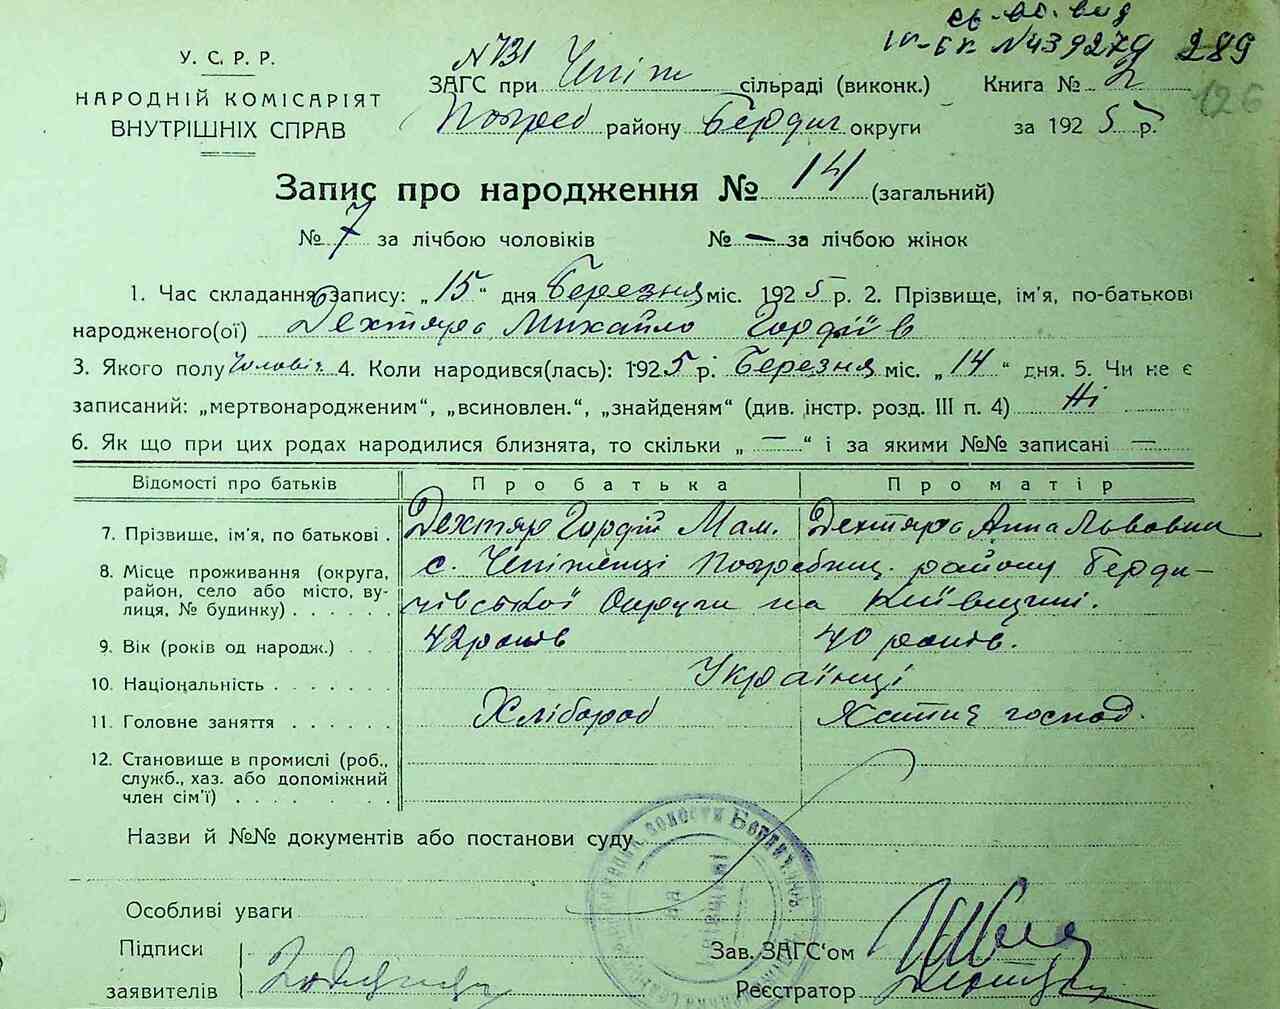 св-во. вид
IP-БП №439279 289
126
У. С. Р. Р.
НАРОДНІЙ КОМІСАРІЯТ
ВНУТРІШНІХ СПРАВ
№731
ЗАГС при Чепіж сільраді (виконк.) Книга № 2
Погреб району Бердич округи за 1925 р.
Запис про народження № 14 (загальний)
№ 7 за лічбою чоловіків № — за лічбою жінок
1. Час складання запису: „15“ дня Березня міс. 1925 р. 2. Прізвище, ім'я, по-батькові
народженого(ої) Дехтяра Михайло Гордіїв
3. Якого полу Чоловіч. 4. Коли народився(лась): 1925 р. Березня міс. „14“ дня. 5. Чи не є
записаний: „мертвонародженим“, „всиновлен.“, „знайденям“ (див. інстр. розд. III п. 4) Ні
6. Як що при цих родах народилися близнята, то скільки „—“ і за якими №№ записані —
Відомості про батьків Про батька Про матір
7. Прізвище, ім'я, по батькові . Дехтяр Гордій Мам. Дехтяра Анна Львовна
8. Місце проживання (округа, с. Чепіженці Погребищ. району Берди-
район, село або місто, ву-
лиця, № будинку) чівської Округи на Київщині.
9. Вік (років од народж.) 42 років 40 років.
10. Національність Українці
11. Головне заняття Хлібороб Хатня господ.
12. Становище в промислі (роб.,
служб., хаз. або допоміжний
член сім'ї)
Назви й №№ документів або постанови суду
Особливі уваги
Підписи
заявителів
Зав. ЗАГС'ом
Реєстратор